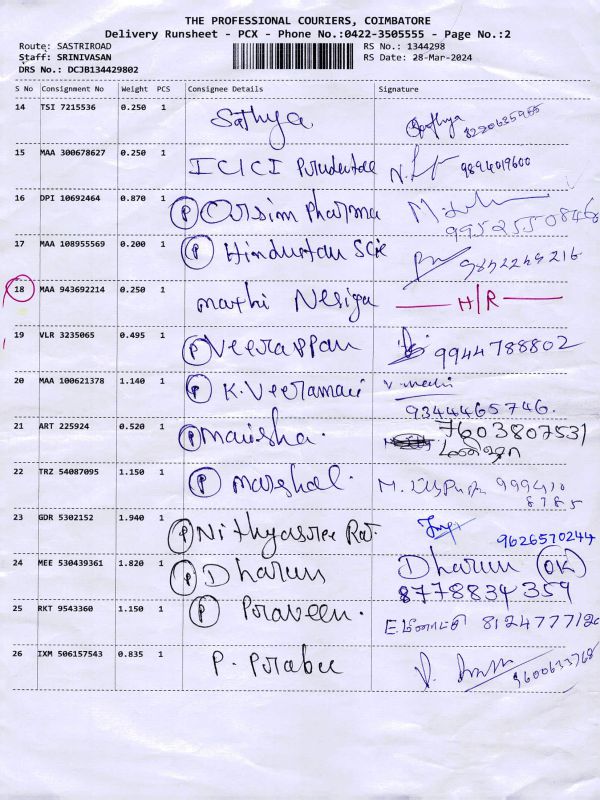 THE PROFESSIONAL COURIERS, COIMBATORE
Delivery Runsheet - PCX - Phone No.:0422-3505555 - Page No.:2
Route: SASTRIROAD RS No.: 1344298
Staff: SRINIVASAN RS Date: 28-Mar-2024
DRS No.: DCJB134429802
S No Consignment No Weight PCS Consignee Details Signature
14 TSI 7215536 0.250 1 Sathya Sathya 8220635955
15 MAA 300678627 0.250 1 ICICI Prudential 9894019600
16 DPI 10692464 0.870 1 P Orsim Pharma 9952550846
17 MAA 108955569 0.200 1 P Hindustan 9842249216
18 MAA 943692214 0.250 1 mathi Nesiga H/R
19 VLR 3235065 0.495 1 P Veerappan 9944788802
20 MAA 100621378 1.140 1 P K. Veeramani V. mani
9344465746.
21 ART 225924 0.520 1 P manisha. 7603807531
22 TRZ 54087095 1.150 1 P marshal. 999410
8785
23 GDR 5302152 1.940 1 P Nithyasree Rat. 9626570244
24 MEE 530439361 1.820 1 P Dharun Dharun OK
8778834359
25 RKT 9543360 1.150 1 P Praveen. 8124777126
26 IXM 506157543 0.835 1 P. Prabu 9600633768